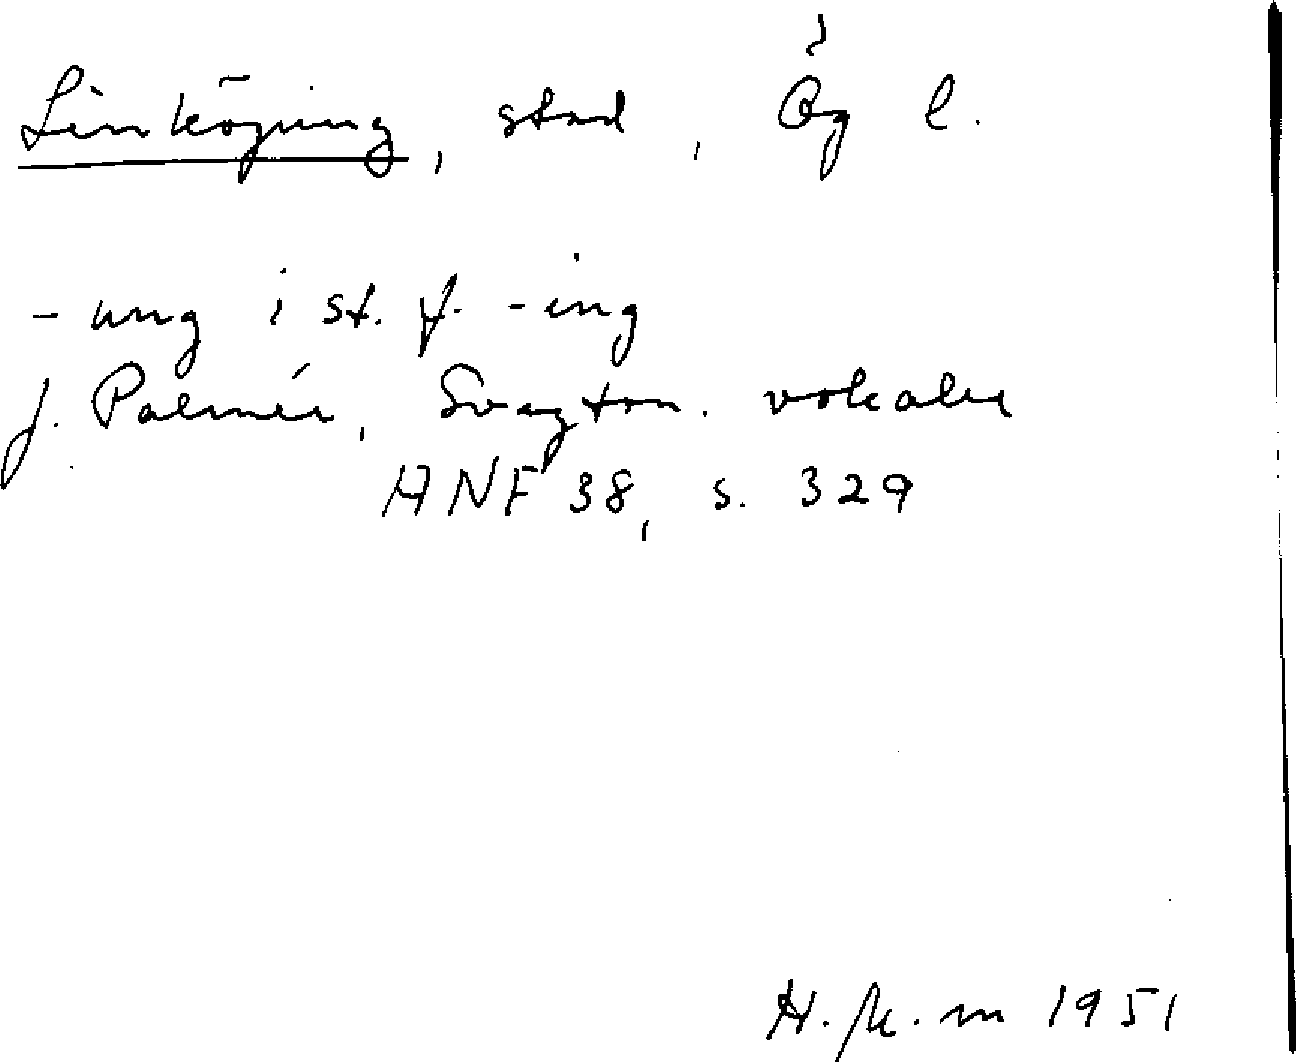 Linköping, stad, Ög l.
-ung i st. f. -ing
J. Palmér, Svagton. vokaler
ANF 38, s. 329
1951